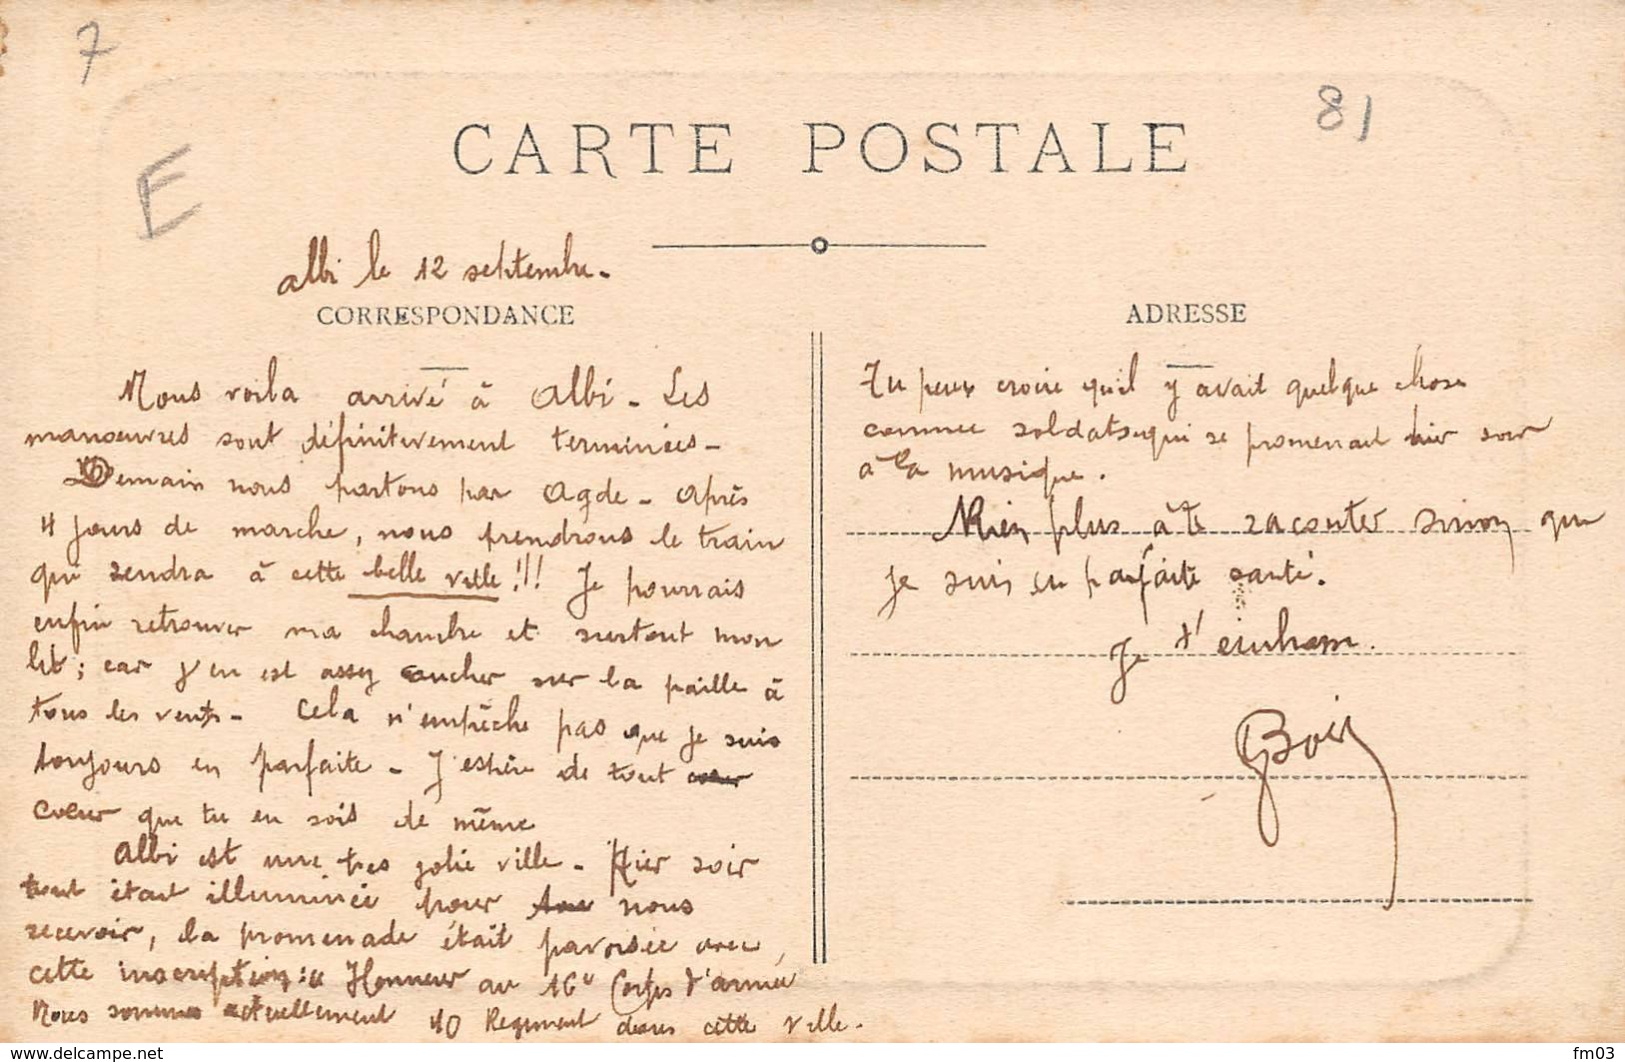 7
81
E
CARTE POSTALE
Albi le 12 septembre.
CORRESPONDANCE
Nous voila arrivé à Albi. Les
manoeuvres sont définitivement terminées.
Demain nous partons par Agde. Après
4 jours de marche, nous prendrons le train
qui rendra à cette belle ville!!! Je pourrais
enfin retrouver ma chambre et surtout mon
lit; car j'en est assez coucher sur la paille à
tous les vents. Cela n'empêche pas que je suis
toujours en parfaite. J'espère de tout
coeur que tu en sois de même
Albi est une tres jolie ville. Hier soir
tout était illuminée pour nous
recevoir, la promenade était pavoisée avec
cette inscription: "Honneur au 16e Corps d'armée
Nous sommes actuellement 10 Regiment dans cette ville.
ADRESSE
Tu peux croire qu'il y avait quelque chose
comme soldats qui se promenait hier soir
à la musique.
Rien plus à te raconter sinon que
je suis en parfaite santé.
Je t'embrasse.
fm03
www.delcampe.net